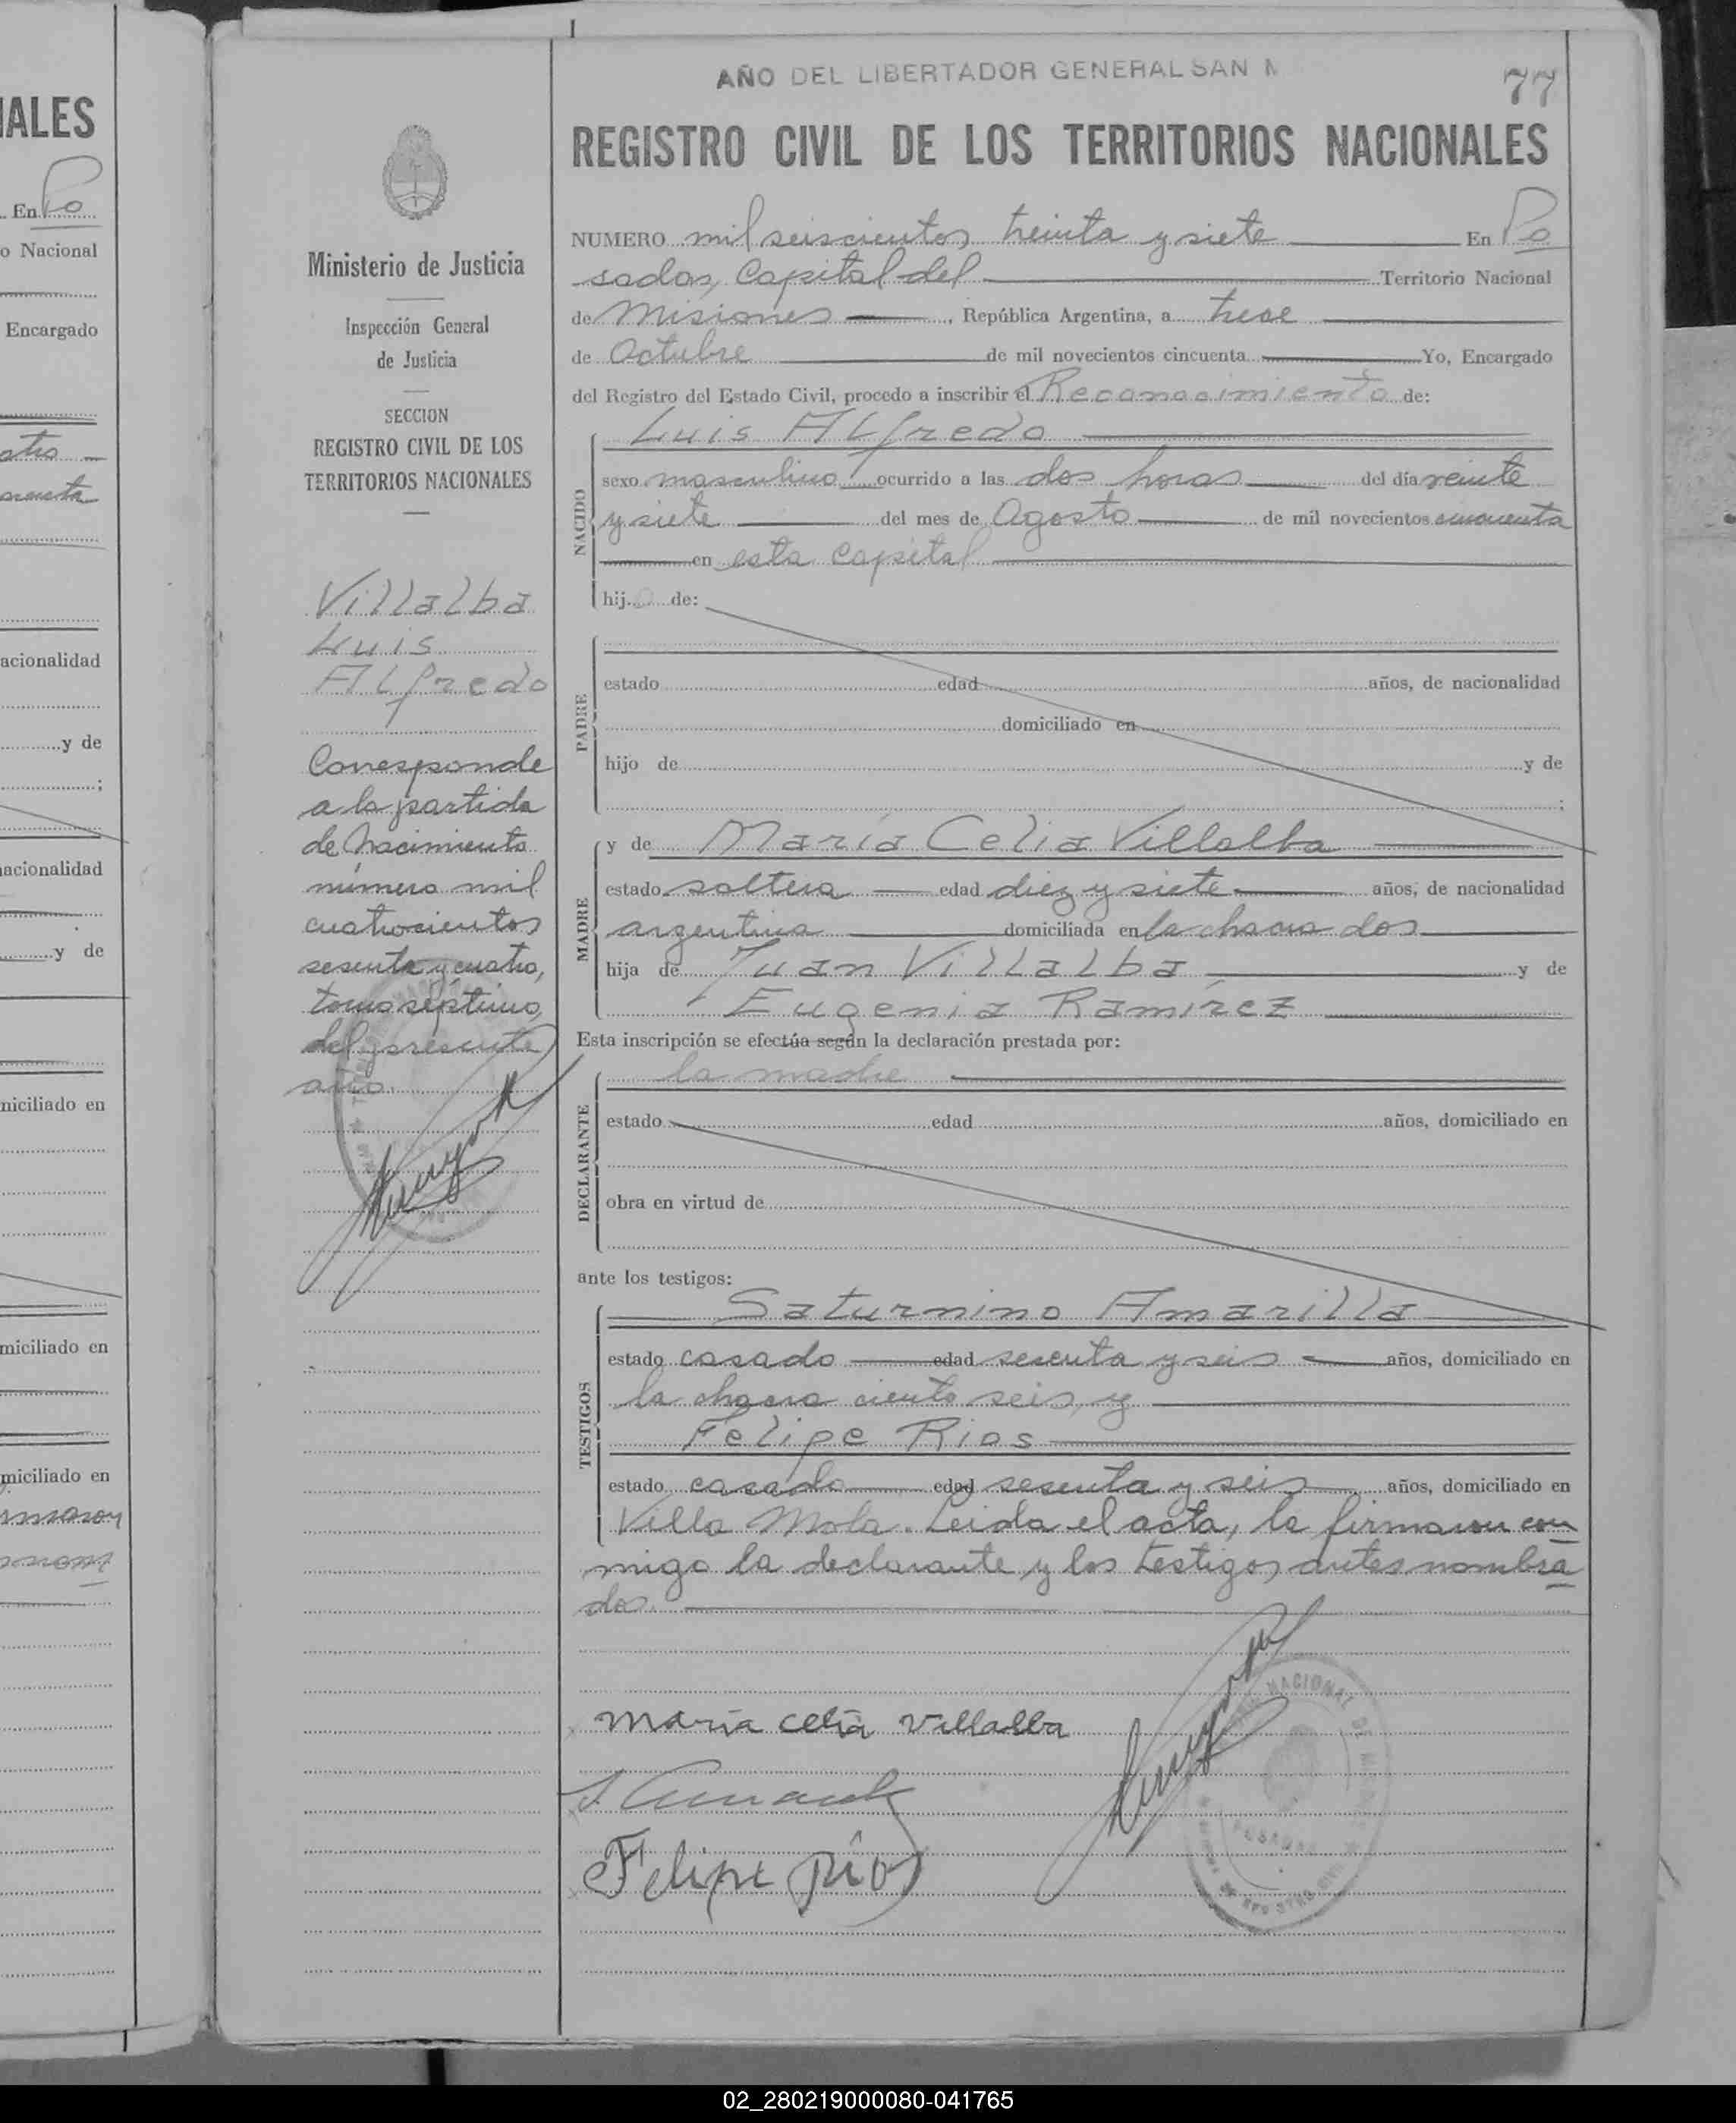 AÑO DEL LIBERTADOR GENERAL SAN M
77
REGISTRO CIVIL DE LOS TERRITORIOS NACIONALES
NUMERO mil seiscientos treinta y siete En Po
sadas, Capital del Territorio Nacional
de Misiones, República Argentina, a trece
de Octubre de mil novecientos cincuenta Yo, Encargado
del Registro del Estado Civil, procedo a inscribir el Reconocimiento de:
Luis Alfredo
NACIDO
sexo masculino ocurrido a las dos horas del día veinte
y siete del mes de Agosto de mil novecientos cincuenta
en esta Capital
hijo de:
PADRE
estado edad años, de nacionalidad
domiciliado en
hijo de y de
;
MADRE
y de María Celia Villalba
estado soltera edad diez y siete años, de nacionalidad
argentina domiciliada en la chacra dos
hija de Juan Villalba y de
Eugenia Ramírez
Esta inscripción se efectúa según la declaración prestada por:
la madre
DECLARANTE
estado edad años, domiciliado en
obra en virtud de
ante los testigos:
TESTIGOS
Saturnino Amarilla
estado casado edad sesenta y seis años, domiciliado en
la chacra ciento seis, y
Felipe Rios
estado casado edad sesenta y seis años, domiciliado en
Villa Mola. Leida el acta, la firmaron con
migo la declarante y los testigos antes nombra
dos.
maría celia villalba
Felipe Ríos
Ministerio de Justicia
Inspección General
de Justicia
SECCION
REGISTRO CIVIL DE LOS
TERRITORIOS NACIONALES
Villalba
Luis
Alfredo
Corresponde
a la partida
de nacimiento
número mil
cuatrocientos
sesenta y cuatro,
tomo séptimo,
del presente
año.
IALES
En Po
o Nacional
Encargado
acionalidad
y de
;
nacionalidad
y de
niciliado en
miciliado en
miciliado en
02_280219000080-041765